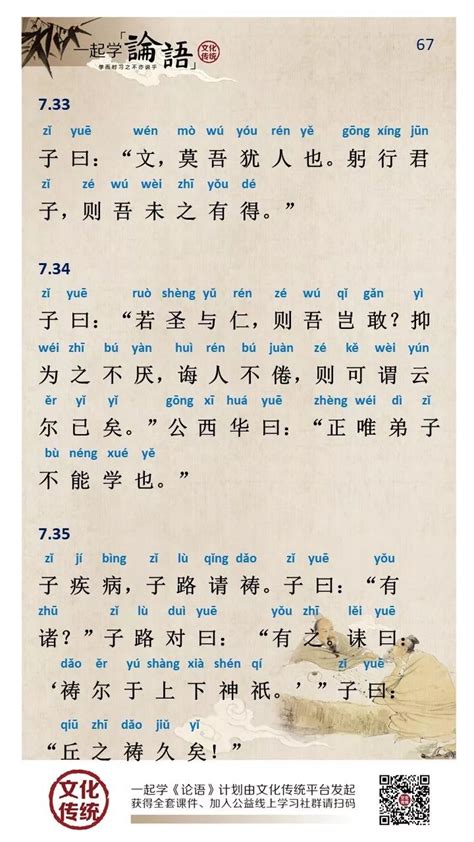 一起学「論語」 文化传统
学而时习之不亦说乎
67
7.33
zǐ yuē wén mò wú yóu rén yě gōng xíng jūn
子曰：“文，莫吾犹人也。躬行君
zǐ zé wú wèi zhī yǒu dé
子，则吾未之有得。”
7.34
zǐ yuē ruò shèng yǔ rén zé wú qǐ gǎn yì
子曰：“若圣与仁，则吾岂敢？抑
wéi zhī bú yàn huì rén bú juàn zé kě wèi yún
为之不厌，诲人不倦，则可谓云
ěr yǐ yǐ gōng xī huá yuē zhèng wéi dì zǐ
尔已矣。”公西华曰：“正唯弟子
bù néng xué yě
不能学也。”
7.35
zǐ jí bìng zǐ lù qǐng dǎo zǐ yuē yǒu
子疾病，子路请祷。子曰：“有
zhū zǐ lù duì yuē yǒu zhī lěi yuē
诸？”子路对曰：“有之。诔曰：
dǎo ěr yú shàng xià shén qí zǐ yuē
‘祷尔于上下神祇。’”子曰：
qiū zhī dǎo jiǔ yǐ
“丘之祷久矣！”
文化传统
一起学《论语》计划由文化传统平台发起
获得全套课件、加入公益线上学习社群请扫码